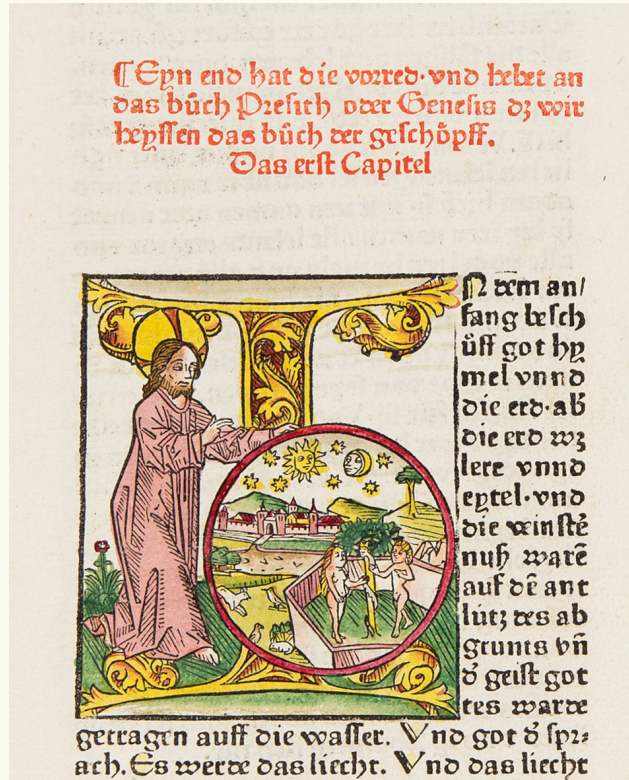 ¶Eyn end hat die vorred·vnd hebet an
das bůch Presith oder Genesis dz wir
heyssen das bůch der geschöpff.
Das erst Capitel
IN dem an/
fang besch
ůff got hy
mel vnnd
die erd·ab̄
die erd wz
lere vnnd
eytel·vnd
die vinstē
nuß warē
auf dē ant
lütz des ab
grunts vn̄
d̄ geist got
tes warde
getragen auff die wasser. Vnd got d̄ spꝛ⸗
ach. Es werde das liecht. Vnd das liecht